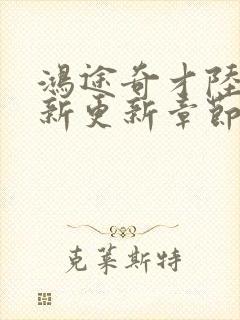 鸿途奇才陸
新更新章節
克莱斯特